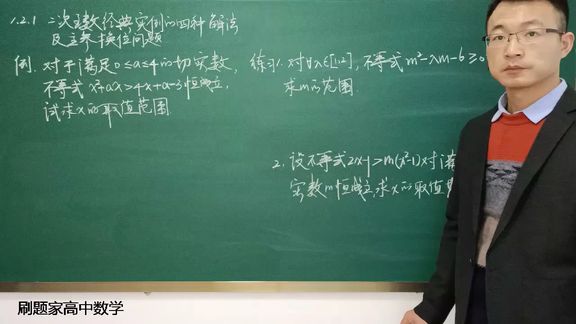 1.2.1 二次函数经典实例的四种解法
及主参换位问题
例. 对于满足0≤a≤4的一切实数,
不等式x²+ax>4x+a-3恒成立,
试求x的取值范围
练习1. 对∀λ∈[1,2], 不等式m²-λm-6≥0
求m的范围
2. 设不等式2x-1>m(x²-1)对满
实数m恒成立,求x的取值
刷题家高中数学